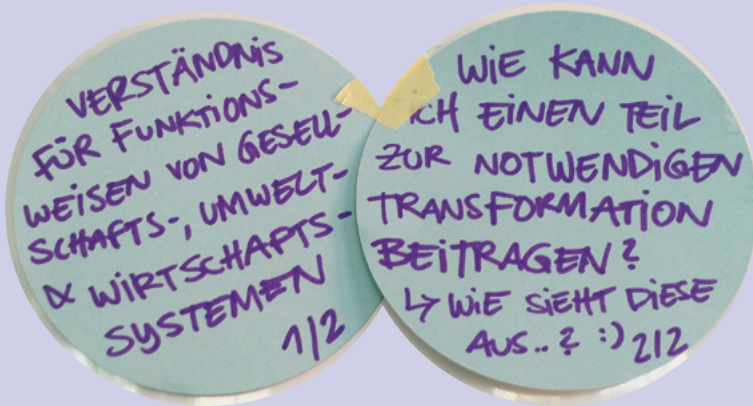 VERSTÄNDNIS
FÜR FUNKTIONS-
WEISEN VON GESELL-
SCHAFTS-, UMWELT-
& WIRTSCHAFTS-
SYSTEMEN
1/2
WIE KANN
ICH EINEN TEIL
ZUR NOTWENDIGEN
TRANSFORMATION
BEITRAGEN?
↳ WIE SIEHT DIESE
AUS..? :) 2/2